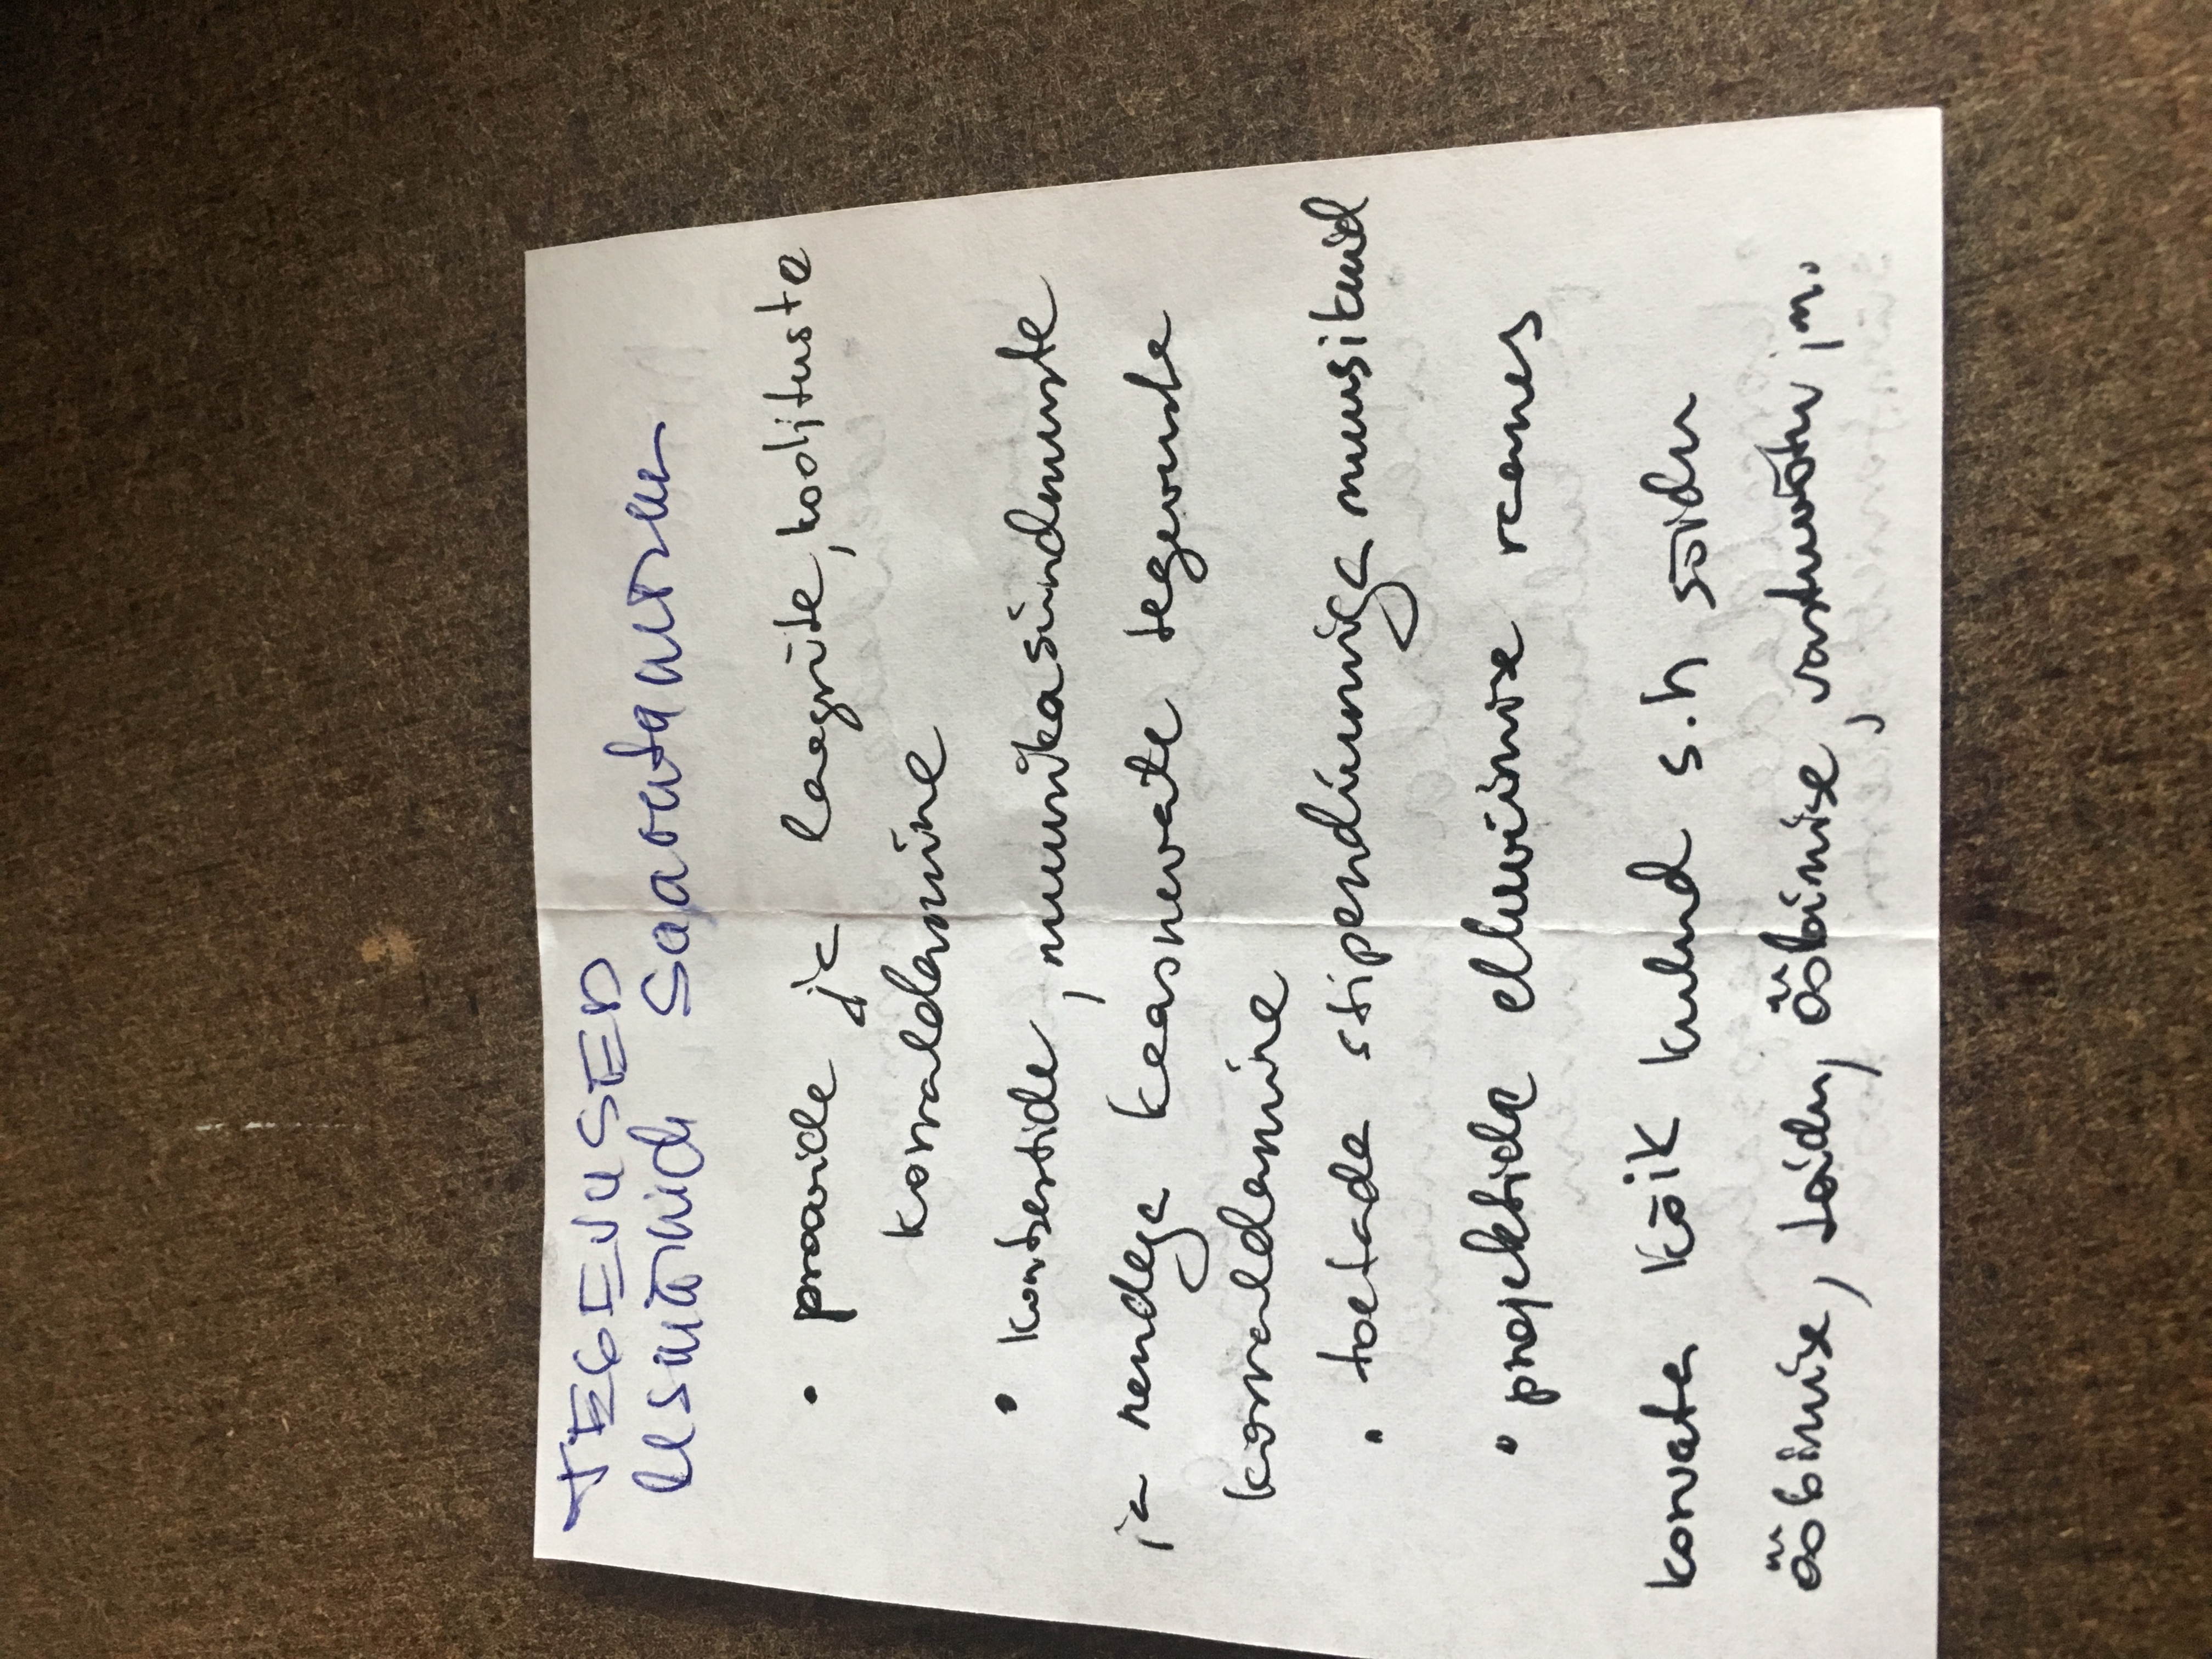 TEGEVUSED
eesmärkide saavutamiseks
• proovide ja laagrite, koolituste
korraldamine
• kontsertide, muusikasündmuste
ja nendega keasnevate tegevuste
korraldamine
• toetada stipendiumiga muusikuid
• projektide elluviimise raames
korvata kõik kulud s.h sõidu
ööbimise, toidu, ööbimise, vastuvõtu jm.